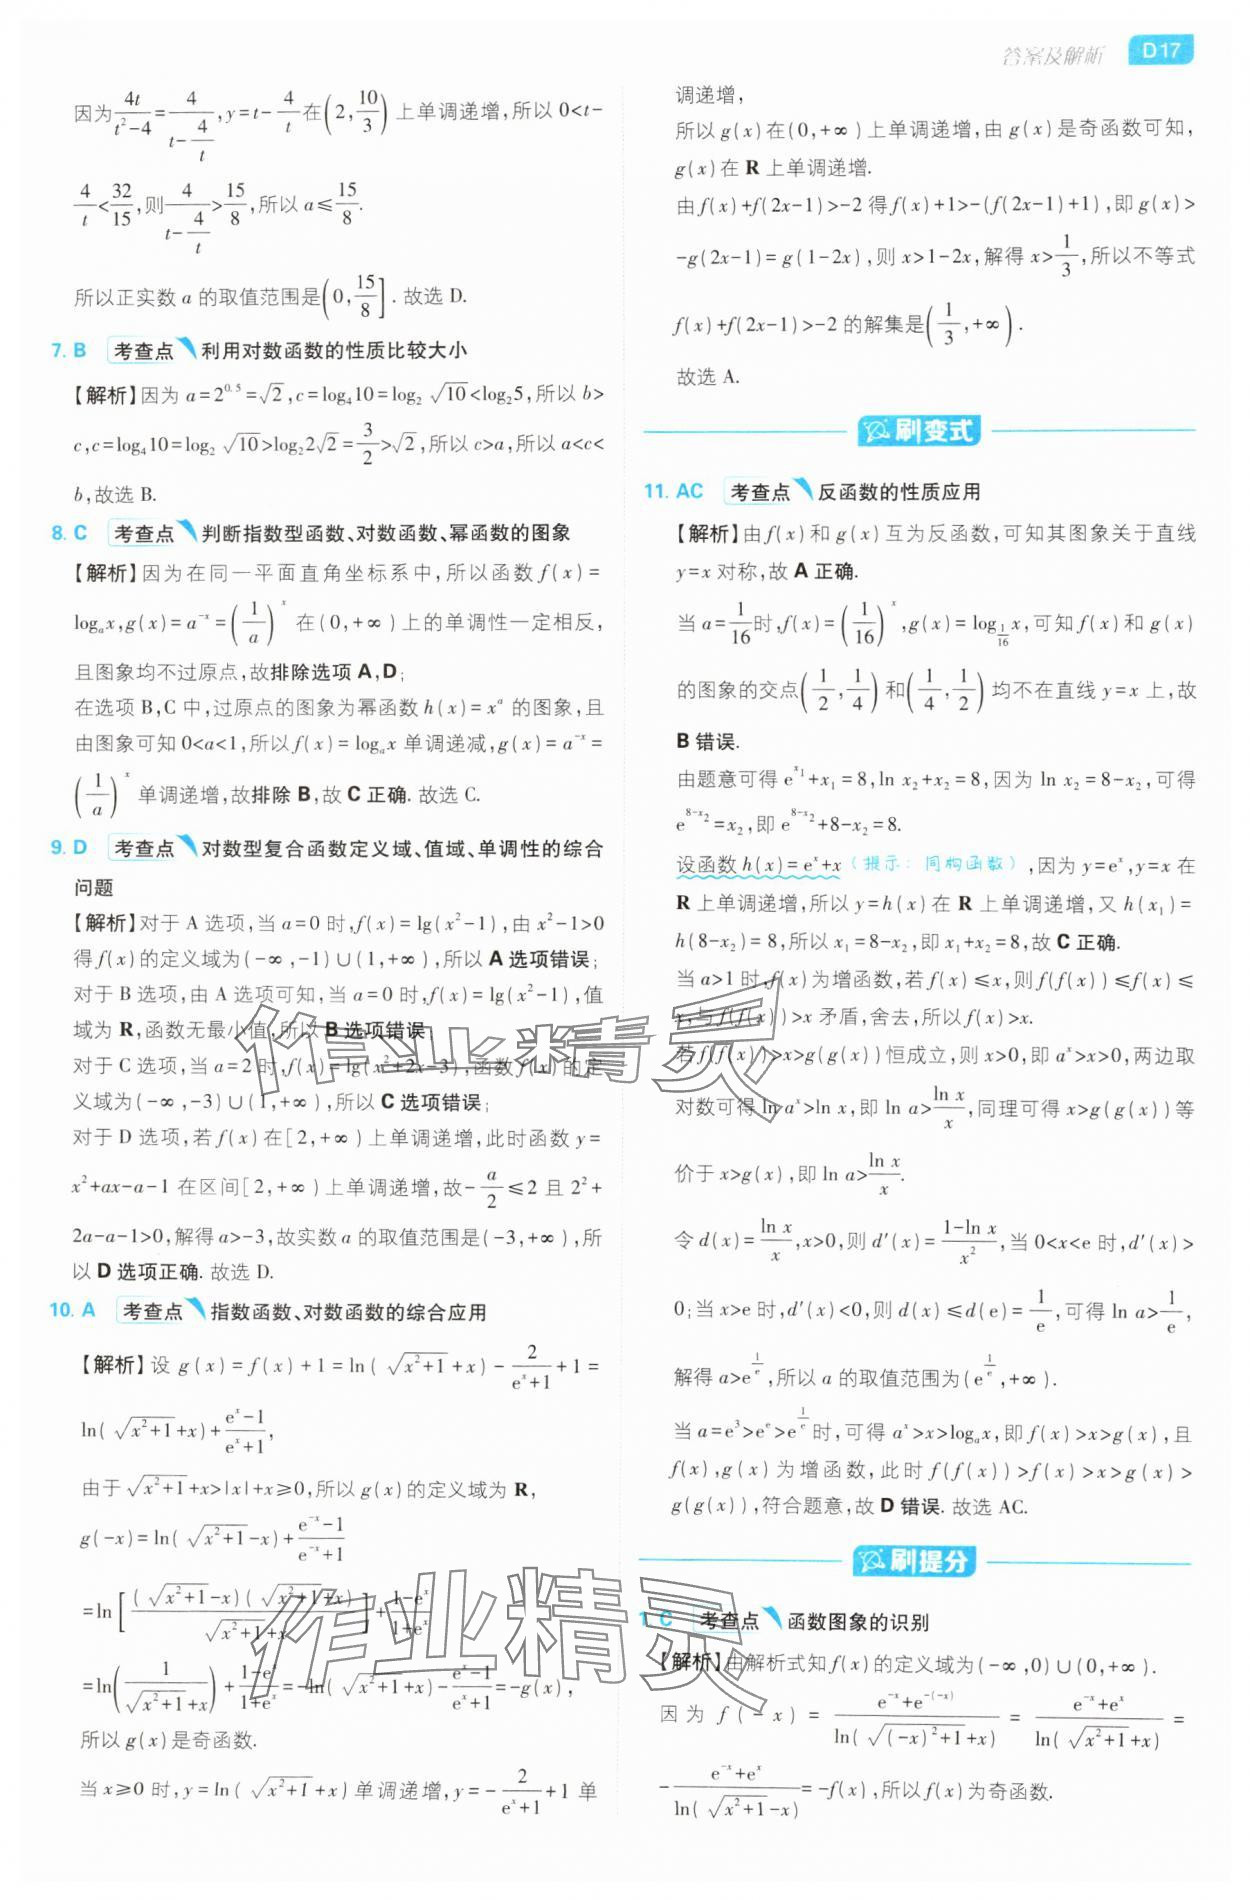 答案及解析 D17
因为4t/(t²-4)=4/(t-4/t),y=t-4/t在(2,10/3)上单调递增,所以0<t-
4/t<32/15,则4/(t-4/t)>15/8,所以a≤15/8.
所以正实数a的取值范围是(0,15/8].故选D.
7. B 考查点 利用对数函数的性质比较大小
【解析】因为a=2^0.5=√2,c=log₄10=log₂√10<log₂5,所以b>
c,c=log₄10=log₂√10>log₂2√2=3/2>√2,所以c>a,所以a<c<
b,故选B.
8. C 考查点 判断指数型函数、对数函数、幂函数的图象
【解析】因为在同一平面直角坐标系中,所以函数f(x)=
logₐx,g(x)=a^(-x)=(1/a)^x在(0,+∞)上的单调性一定相反,
且图象均不过原点,故排除选项A,D;
在选项B,C中,过原点的图象为幂函数h(x)=x^a的图象,且
由图象可知0<a<1,所以f(x)=logₐx单调递减,g(x)=a^(-x)=
(1/a)^x单调递增,故排除B,故C正确.故选C.
9. D 考查点 对数型复合函数定义域、值域、单调性的综合
问题
【解析】对于A选项,当a=0时,f(x)=lg(x²-1),由x²-1>0
得f(x)的定义域为(-∞,-1)∪(1,+∞),所以A选项错误;
对于B选项,由A选项可知,当a=0时,f(x)=lg(x²-1),值
域为R,函数无最小值,所以B选项错误;
对于C选项,当a=2时,f(x)=lg(x²+2x-3),函数f(x)的定
义域为(-∞,-3)∪(1,+∞),所以C选项错误;
对于D选项,若f(x)在[2,+∞)上单调递增,此时函数y=
x²+ax-a-1在区间[2,+∞)上单调递增,故-a/2≤2且2²+
2a-a-1>0,解得a>-3,故实数a的取值范围是(-3,+∞),所
以D选项正确.故选D.
10. A 考查点 指数函数、对数函数的综合应用
【解析】设g(x)=f(x)+1=ln(√(x²+1)+x)-2/(e^x+1)+1=
ln(√(x²+1)+x)+(e^x-1)/(e^x+1),
由于√(x²+1)+x>|x|+x≥0,所以g(x)的定义域为R,
g(-x)=ln(√(x²+1)-x)+(e^(-x)-1)/(e^(-x)+1)
=ln[(√(x²+1)-x)(√(x²+1)+x)/(√(x²+1)+x)]+(1-e^x)/(1+e^x)
=ln(1/(√(x²+1)+x))+(1-e^x)/(1+e^x)=-ln(√(x²+1)+x)-(e^x-1)/(e^x+1)=-g(x),
所以g(x)是奇函数.
当x≥0时,y=ln(√(x²+1)+x)单调递增,y=-2/(e^x+1)+1单
调递增,
所以g(x)在(0,+∞)上单调递增,由g(x)是奇函数可知,
g(x)在R上单调递增.
由f(x)+f(2x-1)>-2得f(x)+1>-(f(2x-1)+1),即g(x)>
-g(2x-1)=g(1-2x),则x>1-2x,解得x>1/3,所以不等式
f(x)+f(2x-1)>-2的解集是(1/3,+∞).
故选A.
刷变式
11. AC 考查点 反函数的性质应用
【解析】由f(x)和g(x)互为反函数,可知其图象关于直线
y=x对称,故A正确.
当a=1/16时,f(x)=(1/16)^x,g(x)=log_(1/16)x,可知f(x)和g(x)
的图象的交点(1/2,1/4)和(1/4,1/2)均不在直线y=x上,故
B错误.
由题意可得e^(x₁)+x₁=8,ln x₂+x₂=8,因为ln x₂=8-x₂,可得
e^(8-x₂)=x₂,即e^(8-x₂)+8-x₂=8.
设函数h(x)=e^x+x(提示:同构函数),因为y=e^x,y=x在
R上单调递增,所以y=h(x)在R上单调递增,又h(x₁)=
h(8-x₂)=8,所以x₁=8-x₂,即x₁+x₂=8,故C正确.
当a>1时,f(x)为增函数,若f(x)≤x,则f(f(x))≤f(x)≤
x,与f(f(x))>x矛盾,舍去,所以f(x)>x.
若f(f(x))>x>g(g(x))恒成立,则x>0,即a^x>x>0,两边取
对数可得ln a^x>ln x,即ln a>ln x/x,同理可得x>g(g(x))等
价于x>g(x),即ln a>ln x/x.
令d(x)=ln x/x,x>0,则d′(x)=(1-ln x)/x²,当0<x<e时,d′(x)>
0;当x>e时,d′(x)<0,则d(x)≤d(e)=1/e,可得ln a>1/e,
解得a>e^(1/e),所以a的取值范围为(e^(1/e),+∞).
当a=e³>e^e>e^(1/e)时,可得a^x>x>logₐx,即f(x)>x>g(x),且
f(x),g(x)为增函数,此时f(f(x))>f(x)>x>g(x)>
g(g(x)),符合题意,故D错误.故选AC.
刷提分
1. C 考查点 函数图象的识别
【解析】由解析式知f(x)的定义域为(-∞,0)∪(0,+∞).
因为f(-x)=(e^(-x)+e^(-(-x)))/ln(√((-x)²+1)+x)=(e^(-x)+e^x)/ln(√(x²+1)+x)=
-(e^(-x)+e^x)/ln(√(x²+1)-x)=-f(x),所以f(x)为奇函数.
作业精灵
作业精灵